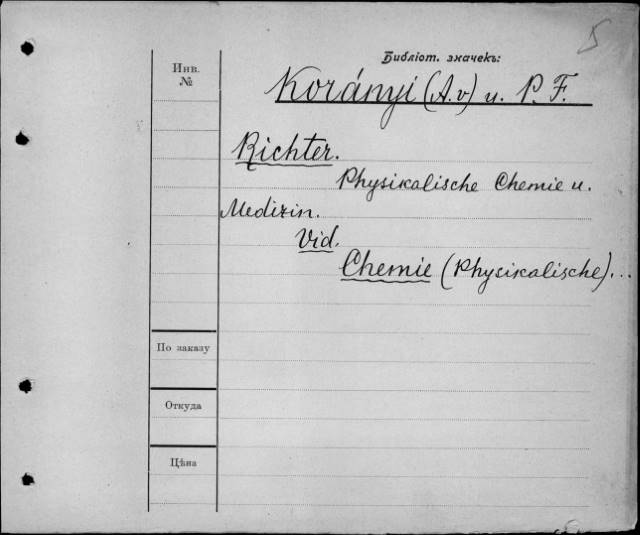 5
Библіот. значекъ:
Инв.
№
Korányi (A.v) u. P. F.
Richter.
Physikalische Chemie u.
Medizin.
Vid.
Chemie (Physikalische)...
По заказу
Откуда
Цѣна